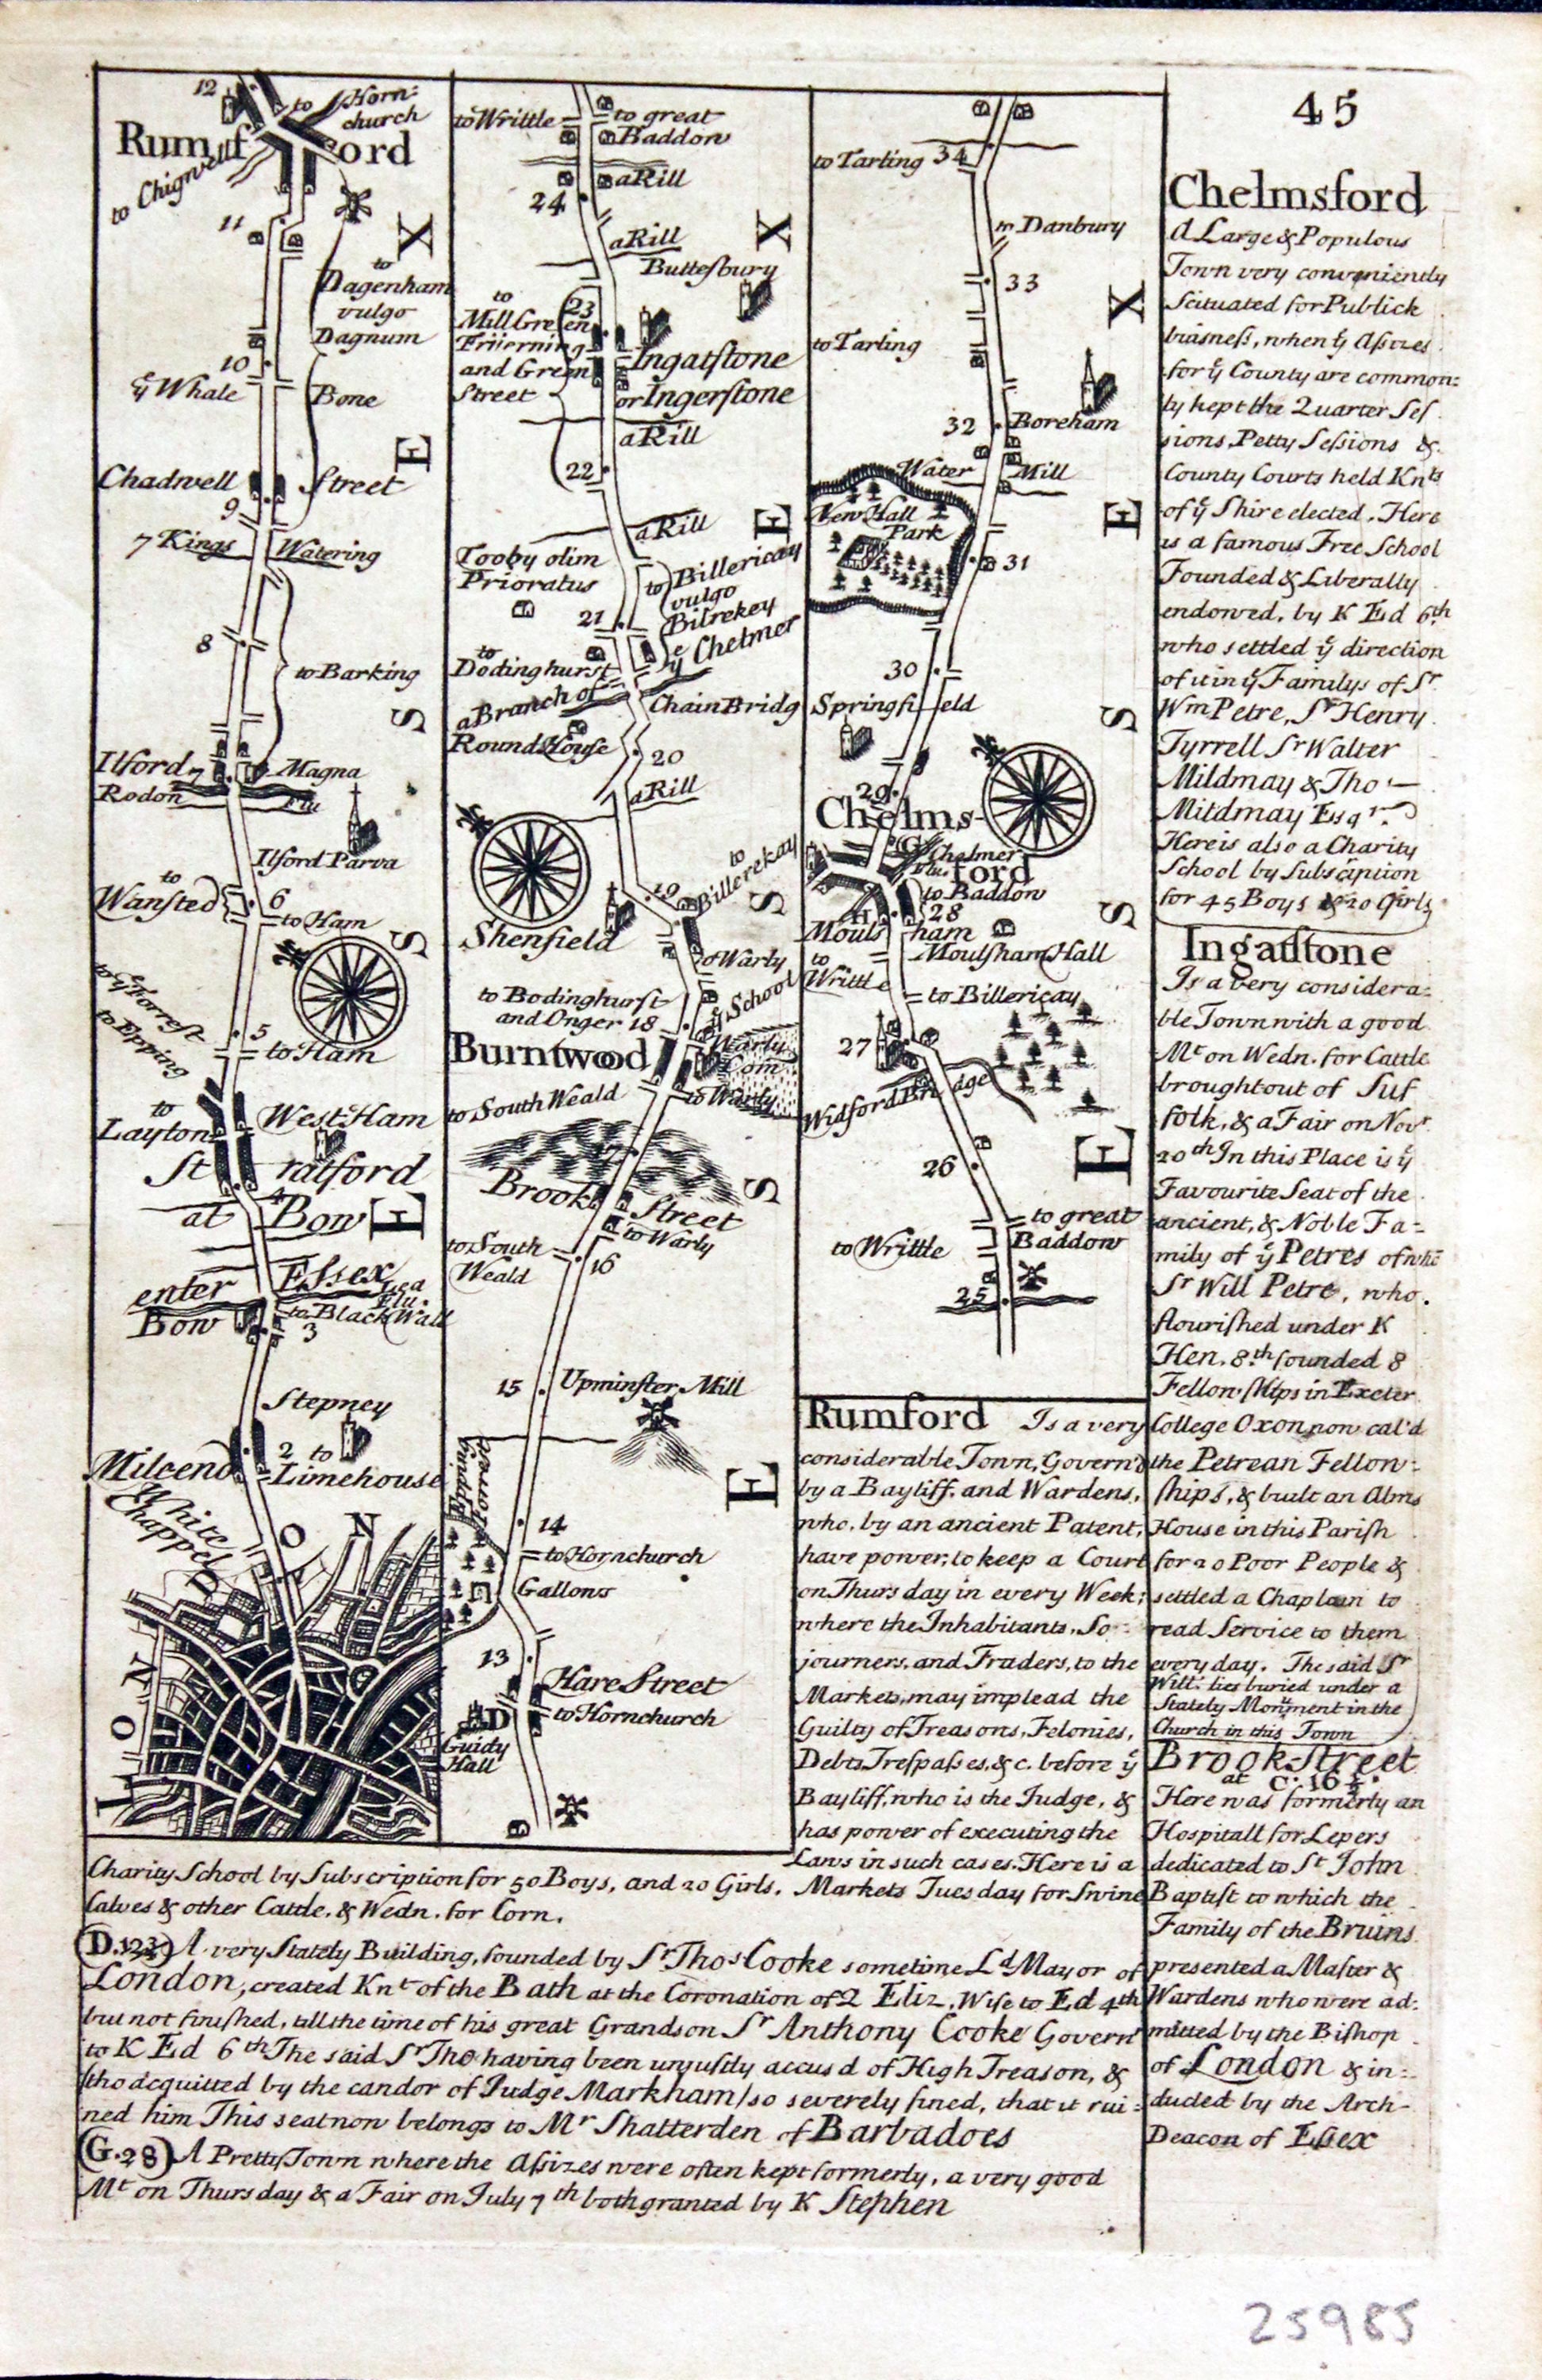 45
12
to Horn-
church
Rumf ord
to Chigwell
11
to
Dagenham
vulgo
Dagnum
10
yͤ Whale
Bone
Chadwell Street
9
7 Kings Watering
8
to Barking
Ilford 7 Magna
Rodon Flu
Ilford Parva
to
Wansted
6
to Ham
to yͤ Forrest
to Epping
5
to Ham
to
Layton
West Ham
St ratford
4
at Bow
enter Essex
Lea
Flu.
Bow
to Black Wall
3
Stepney
Mileend
2 to
Limehouse
White
Chappel
LONDON
ESSEX
to Writtle
to great
Baddow
a Rill
24
a Rill
Buttesbury
to
Mill Green
Frierning
and Green
Street
23
Ingatstone
or Ingerstone
a Rill
22
a Rill
Tooby olim
Prioratus
to Billericay
vulgo
Bilrekey
21
to
Dodinghurst
a Branch of yͤ Chelmer
Chain Bridg
Round House
20
a Rill
to
Billerekay
19
Shenfield
to Warly
to Bodinghurst
and Onger 18
yͤ School
Burntwood
Warly
Com
to South Weald
to Warly
17
Brook Street
to Warly
to South
Weald
16
15
Upminster Mill
14
to Hornchurch
Gallows
13
Hare Street
D
to Hornchurch
Guidy
Hall
ESSEX
to Tarling 34
to Danbury
33
to Tarling
32
Boreham
Water Mill
New Hall
Park
31
30
Springfi eld
29
Chelms-
G
Chelmer
Flu.
ford
to Baddow
H
28
Mouls ham
Moulsham Hall
to
Writtle
to Billericay
27
Widford Bridge
26
to great
Baddow
to Writtle
25
ESSEX
Rumford Is a very
considerable Town, Govern'd
by a Bayliff, and Wardens,
who, by an ancient Patent,
have power, to keep a Court
on Thursday in every Week;
where the Inhabitants, So-
journers, and Traders, to the
Markets, may implead the
Guilty of Treasons, Felonies,
Debts, Trespasses, & c. before yͤ
Bayliff, who is the Judge, &
has power of executing the
Laws in such cases. Here is a
Charity School by Subscription for 50 Boys, and 20 Girls. Markets Tuesday for Swine
Calves & other Cattle, & Wedn. for Corn.
D. A very Stately Building, founded by Sʳ Thoˢ Cooke sometime Lᵈ Mayor of
London, created Knᵗ of the Bath at the Coronation of Q Eliz. Wife to Ed 4ᵗʰ
but not finished, till the time of his great Grandson Sʳ Anthony Cooke Governʳ
to K Ed 6ᵗʰ The said Sʳ Tho having been unjustly accus'd of High Treason, &
(tho acquitted by the candor of Judge Markham) so severely fined, that it rui-
ned him This seat now belongs to Mʳ Shatterden of Barbadoes
G. 28 A Pretty Town where the Assizes were often kept formerly, a very good
Mᵗ on Thursday & a Fair on July 7ᵗʰ both granted by K Stephen
Chelmsford
A Large & Populous
Town very conveniently
Scituated for Publick
buisness, when yͤ Assizes
for yͤ County are common-
ly kept the Quarter Ses
sions, Petty Sessions &
County Courts held Knᵗˢ
of yͤ Shire elected. Here
is a famous Free School
Founded & Liberally
endowed, by K Ed 6ᵗʰ
who settled yͤ direction
of it in yͤ Familys of Sʳ
Wᵐ Petre, Sʳ Henry
Tyrrell Sʳ Walter
Mildmay & Tho:
Mildmay Esqʳ.
Here is also a Charity
School by Subscription
for 45 Boys & 20 Girls
Ingatstone
Is a very considera-
ble Town with a good
Mᵗ on Wedn. for Cattle
brought out of Suf
folk, & a Fair on Novʳ.
20ᵗʰ In this Place is yͤ
Favourite Seat of the
ancient, & Noble Fa-
mily of yͤ Petres of whō
Sʳ Will Petre, who
flourished under K
Hen. 8ᵗʰ founded 8
Fellowships in Exeter
College Oxon, now cal'd
the Petrean Fellow-
ships, & built an Alms
House in this Parish
for 20 Poor People &
settled a Chaplain to
read Service to them
every day. The said Sʳ
Will: lies buried under a
Stately Monument in the
Church in this Town
Brook-Street
at C. 16 ½.
Here was formerly an
Hospitall for Lepers
dedicated to Sᵗ John
Baptist to which the
Family of the Bruins
presented a Master &
Wardens who were ad-
mitted by the Bishop
of London & in-
ducted by the Arch-
Deacon of Essex
25985